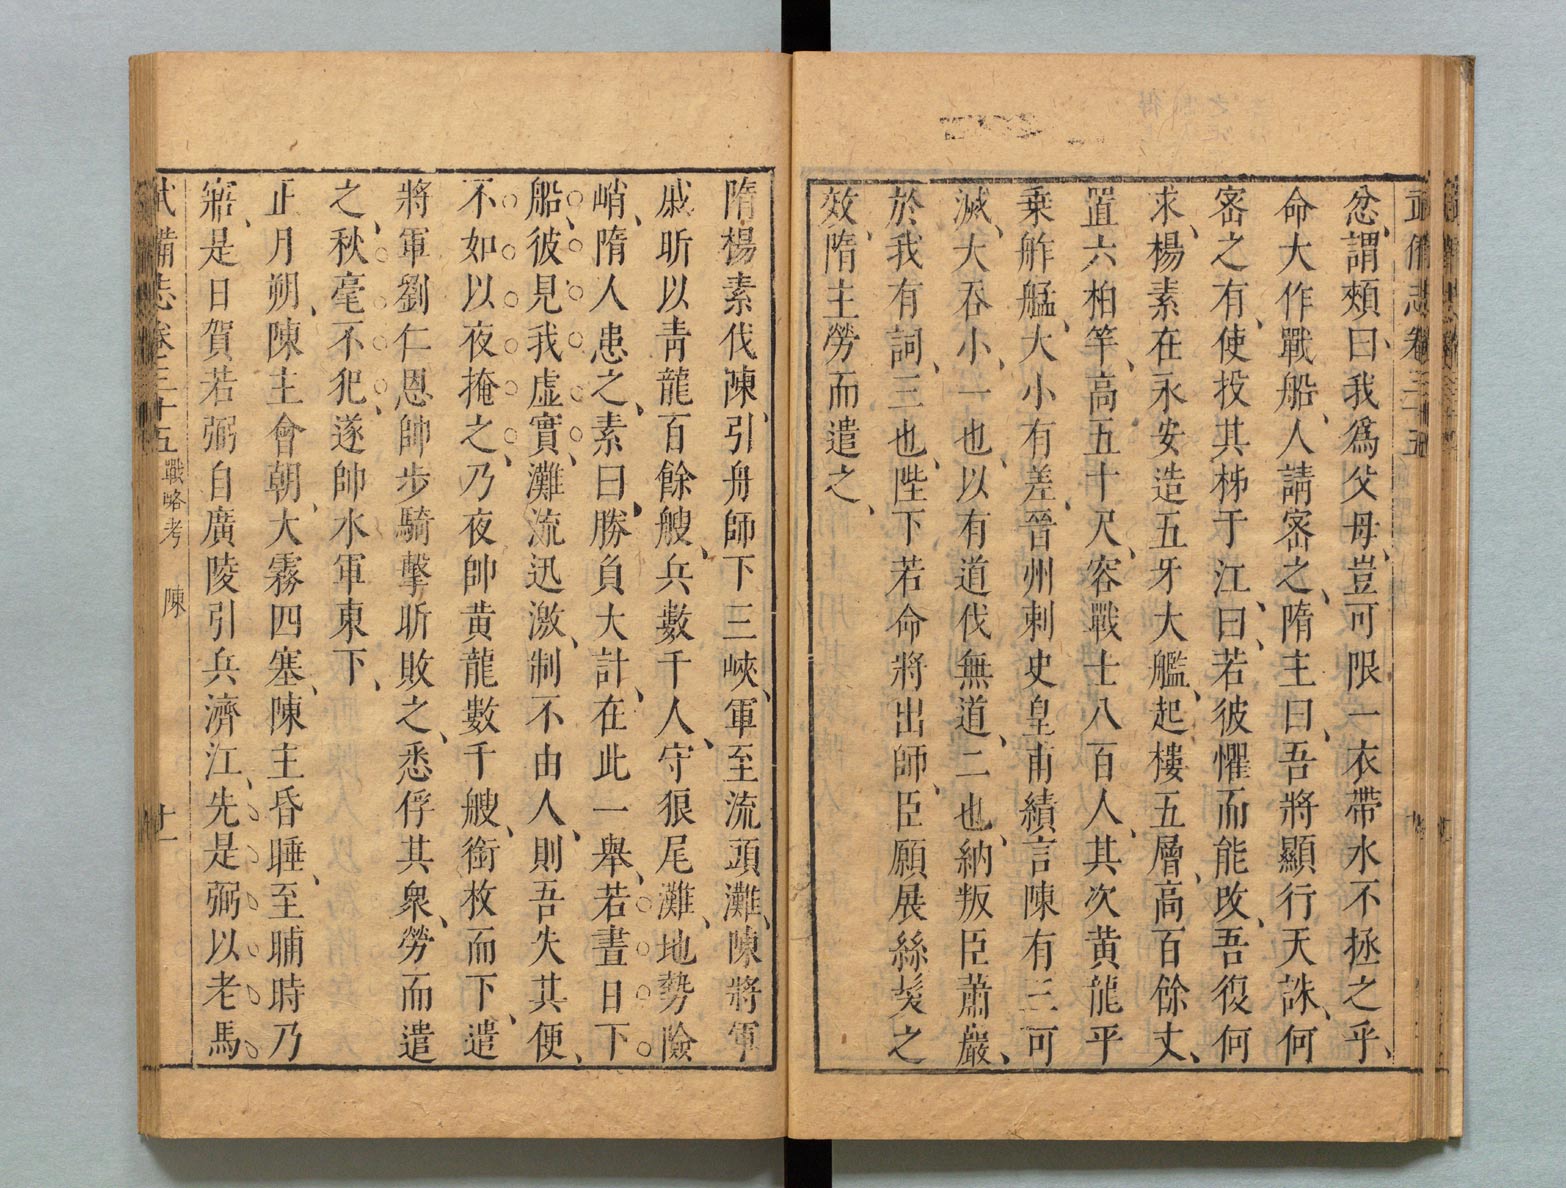 忿謂熲曰我爲父母豈可限一衣帶水不拯之乎
命大作戰船人請密之隋主曰吾將顯行天誅何
密之有使投其柹于江曰若彼懼而能改吾復何
求楊素在永安造五牙大艦起樓五層高百餘丈
置六柏竿高五十尺容戰士八百人其次黄龍平
乗舴艋大小有差晉州刺史皇甫績言陳有三可
滅大吞小一也以有道伐無道二也納叛臣蕭巖
於我有詞三也陛下若命將出師臣願展絲髮之
效隋主勞而遣之
隋楊素伐陳引舟師下三峽軍至流頭灘陳將軍
戚昕以靑龍百餘艘兵數千人守狼尾灘地勢險
峭隋人患之素曰勝負大計在此一舉若晝日下
船彼見我虛實灘流迅激制不由人則吾失其便
不如以夜掩之乃夜帥黄龍數千艘銜枚而下遣
將軍劉仁恩帥步騎擊昕敗之悉俘其衆勞而遣
之秋毫不犯遂帥水軍東下
正月朔陳主會朝大霧四塞陳主昏睡至晡時乃
寤是日賀若弼自廣陵引兵濟江先是弼以老馬
武備志卷三十五 戰略考 陳 十一